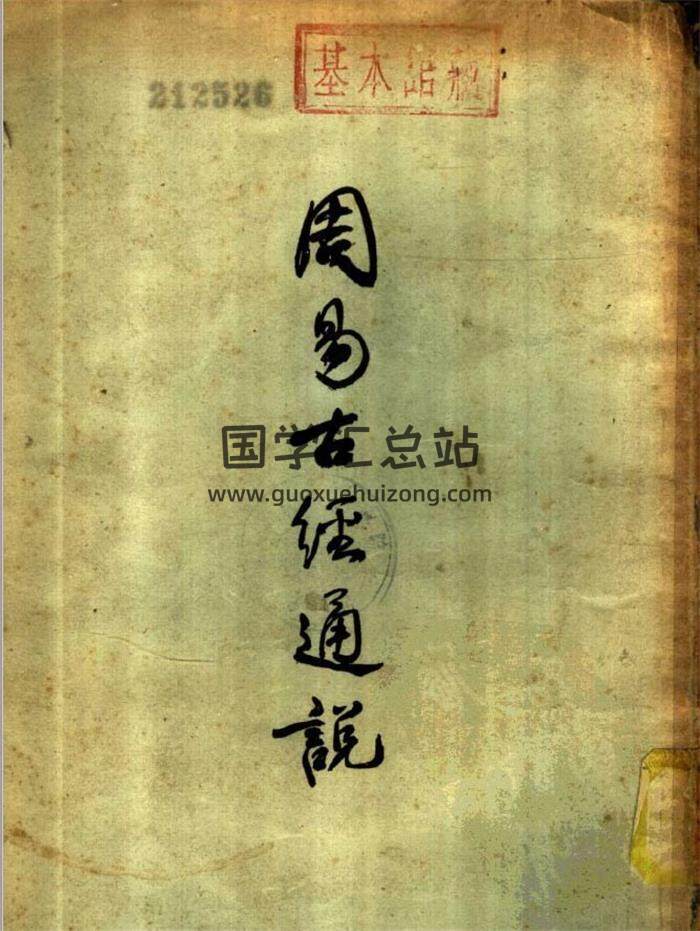 基本馆藏
212526
周易古經通説
国学汇总站
www.guoxuehuizong.com